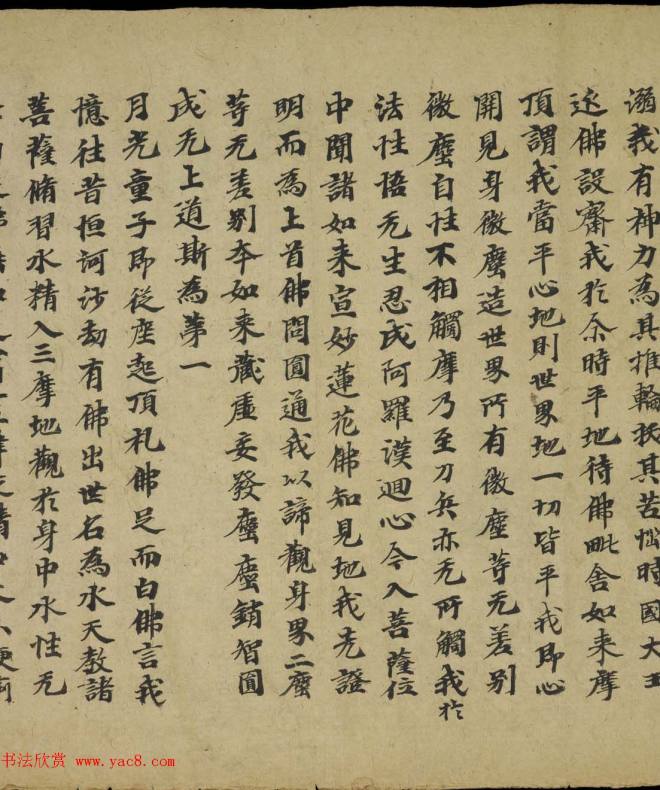 溺我有神力為其推輪扷其苦惱時國大王
迳佛設齋我扵尒時平地待佛毗舍如来摩
頂謂我當平心地則世界地一切皆平我即心
開見身微塵造世界所有微塵䓁无差别
微塵自性不相觸摩乃至刀兵亦无所觸我扵
法性悟无生忍成阿羅漢迴心今入菩薩位
中聞諸如来宣妙蓮花佛知見地我先證
明而為上首佛問圓通我以諦觀身界二塵
䓁无差别夲如来蔵虚妄發塵塵銷智圓
成无上道斯為第一
月光童子即從座起頂礼佛足而白佛言我
憶往昔恒河沙劫有佛出世名為水天教諸
菩薩脩習水精入三摩地觀扵身中水性无
书法欣赏 www.yac8.com